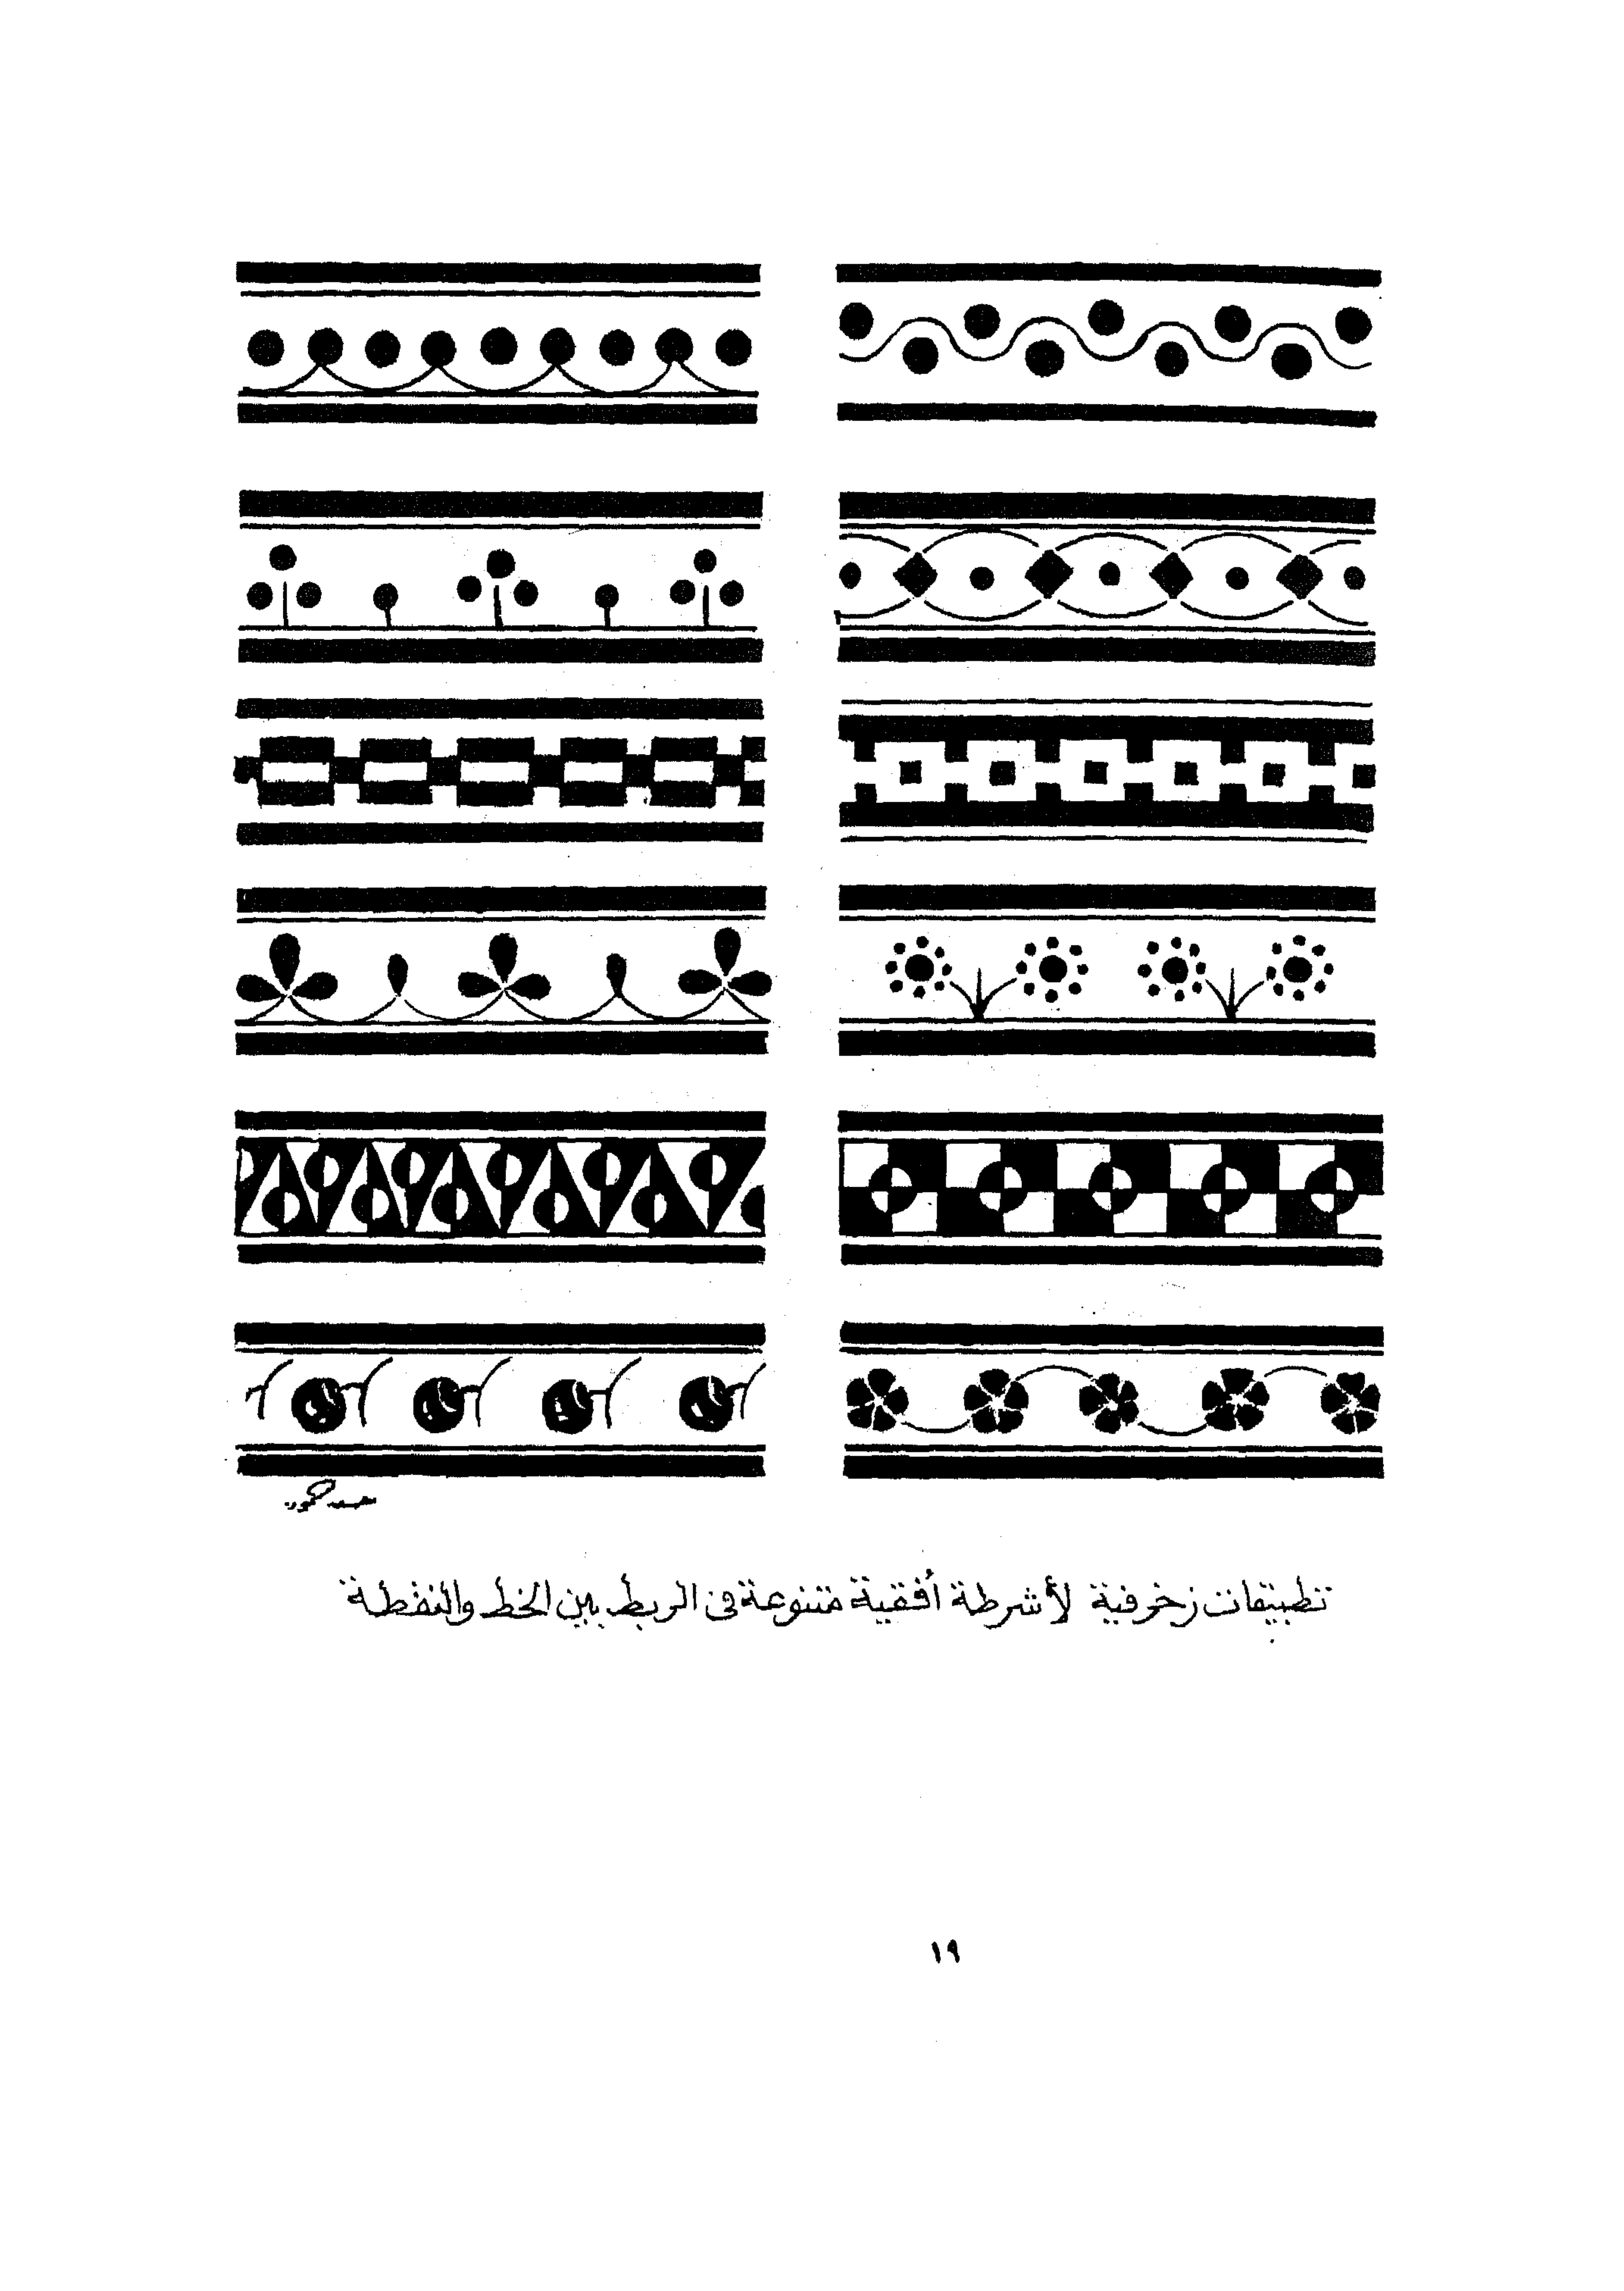 تطبيقات زخرفية لأشرطة أفقية متنوعة في الربط بين الخط والنقطة
١٩